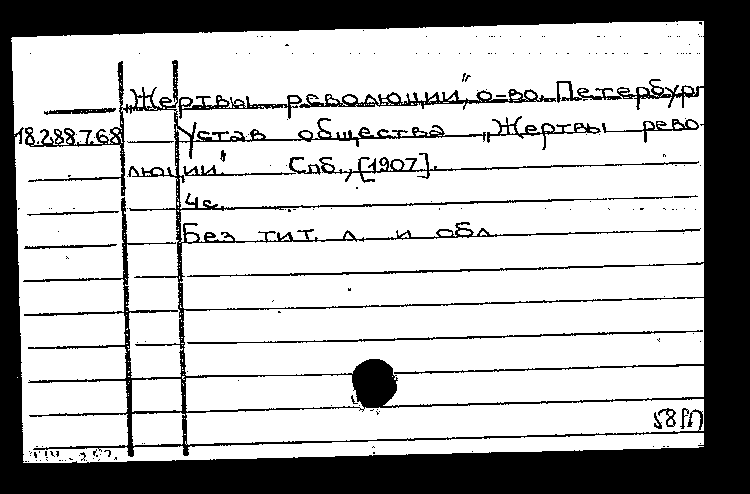 „Жертвы революции“, о-во. Петербург
18.288.7.68 Устав общества „Жертвы рево-
люции“. Спб., [1907].
4с.
Без тит. л. и обл.